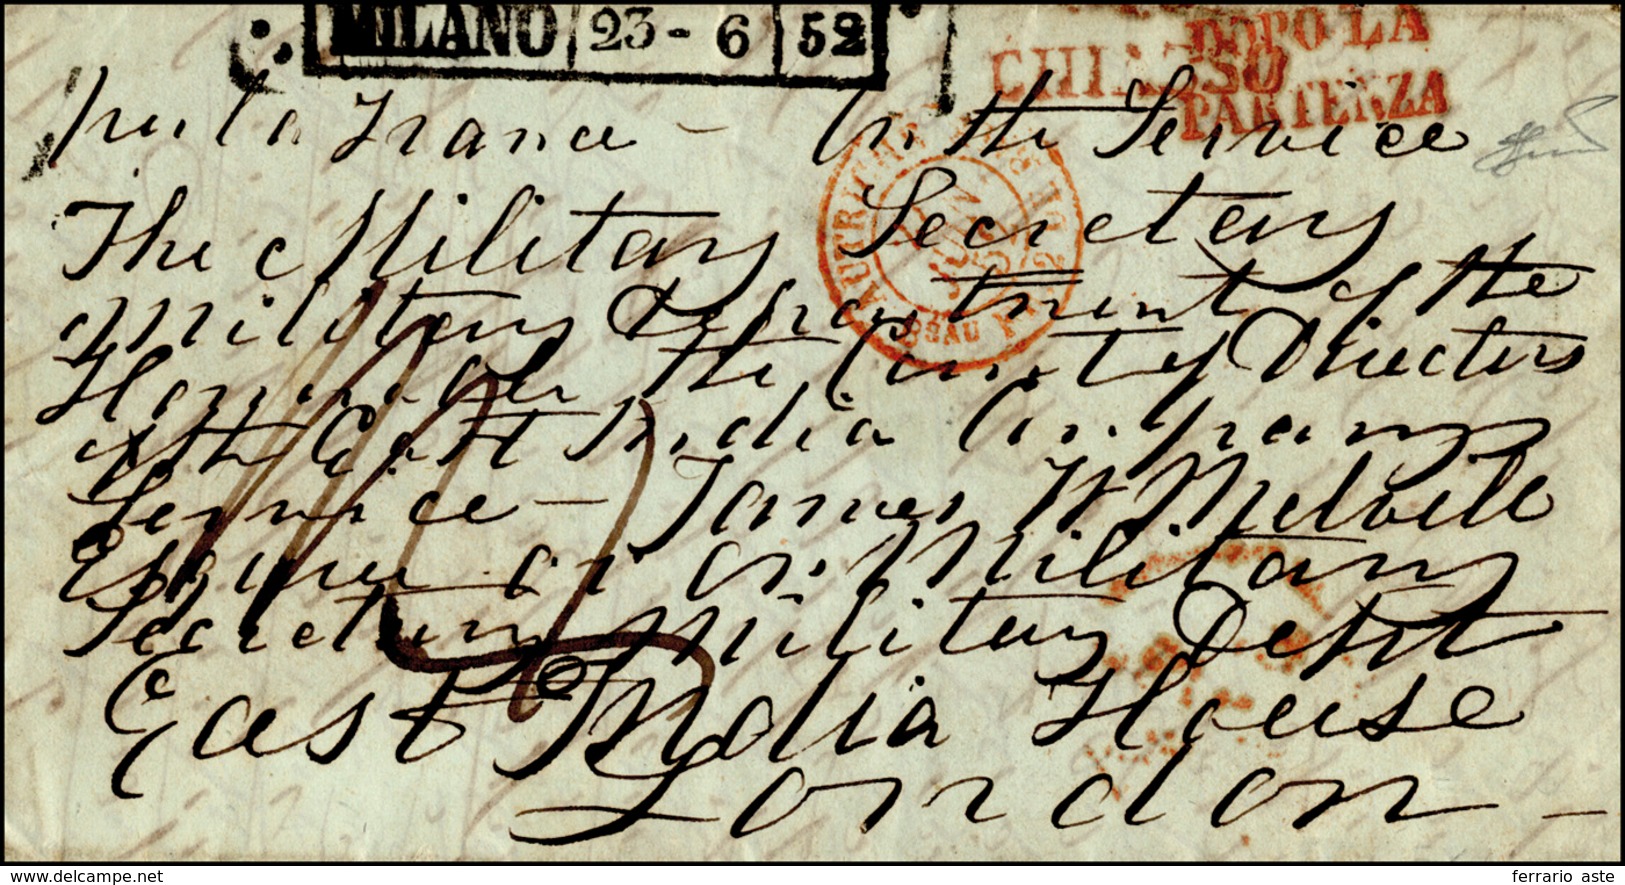 MILANO 23 - 6 52
DOPO LA
CHIASSO
PARTENZA
per la France - On the Service
The Military Secretary
Military Department of the
Honourable the Court of Directors
of the East India Company
Service - James H Melvill
Esquire or on Military
Secretary Military Dept
East India House
London -
AUTRICHE
www.delcampe.net
ferrario aste